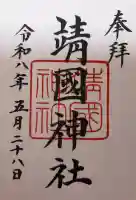 奉拝
靖國神社
令和八年五月二十八日
靖國神社